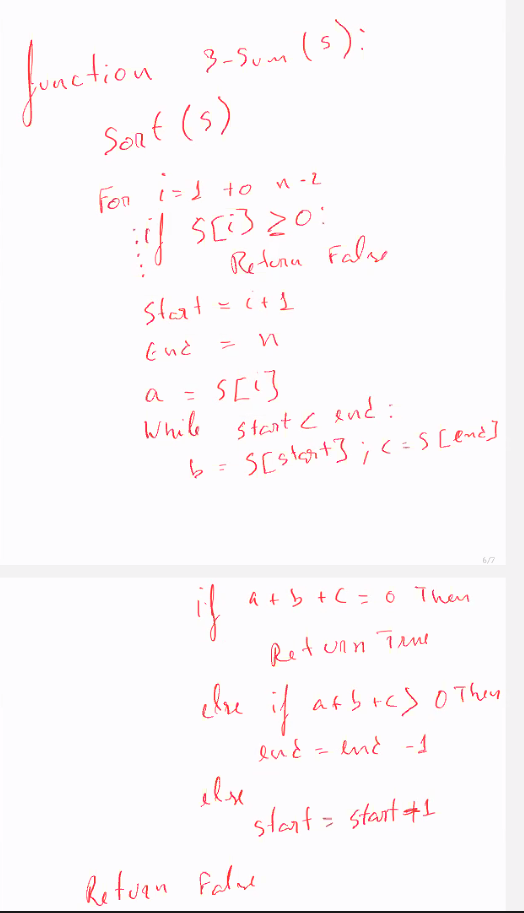 function 3-Sum (s):
Sort (s)
For i = 1 to n-2
if S[i] ≥ 0:
Return False
Start = i+1
End = n
a = S[i]
While start < end:
b = S[start] ; c = S[end]
6/7
if a + b + c = 0 Then
Return True
else if a+b+c > 0 Then
end = end - 1
else
start = start + 1
Return False